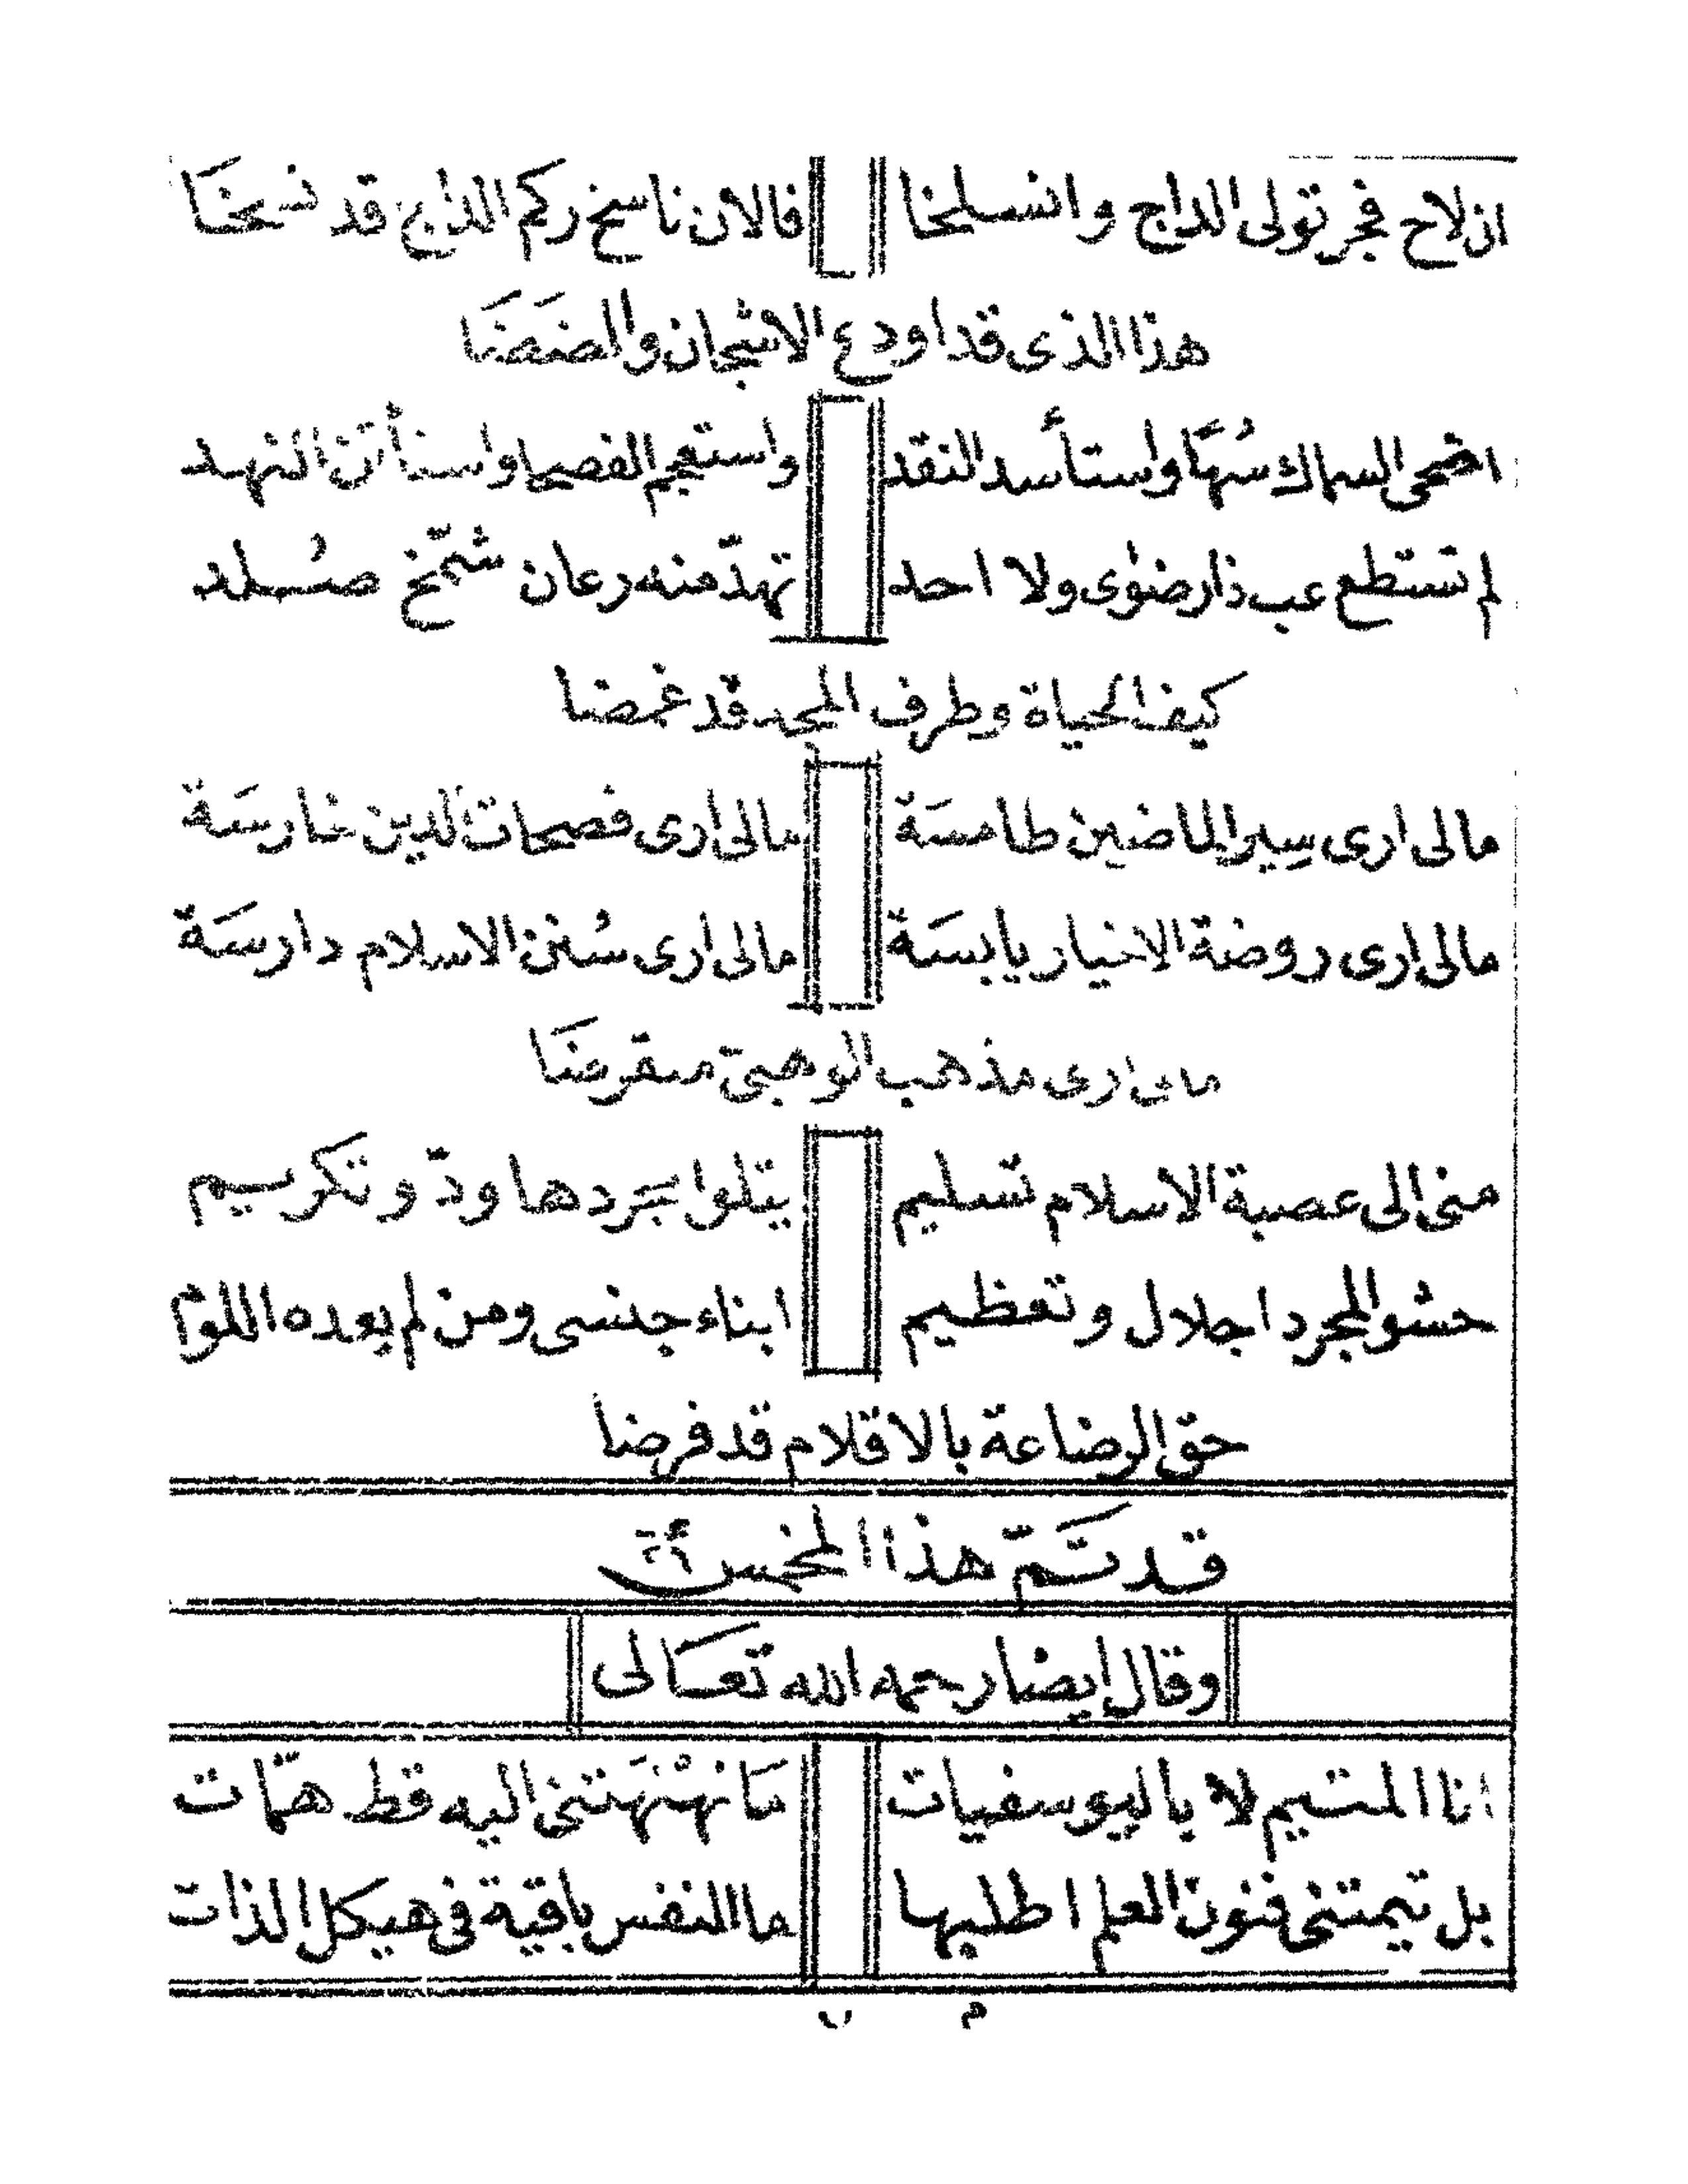 ان لاح فجر تولى الداج وانسلخا فالان ناسخ ركم الداج قد نسخَا
هذا الذى قد اودع الاشجان والمضَضَا
اضحى السماك سُهًا واستأسد النقد واستعجم الفصحا واستأتن النهد
لم تستطع عب ذا رضوٰى ولا احد تهدّ منه رعان شمّخ صُلد
كيف الحياة وطرف المجد قد غمضا
مالى ارى سِير الماضين طامسَة مالى ارى فصحات الدين خارسَة
مالى ارى روضة الاخيار يابسَة مالى ارى سُنن الاسلام دارسَة
مالى ارى مذهب الوهبىّ منقرضَا
منى الى عصبة الاسلام تسليم يتلوا مجردها ودّ وتكريم
حشو المجرد اجلال وتعظيم ابناء جنسى ومن لم يعده اللوم
حق الرضاعة بالاقلام قد فرضا
قد تَمّ هذا المخمس
وقال ايضا رحمه الله تعَالى
انا المتيم لا باليوسفيات مَا نهْنهَتنى اليه قط همّات
بل تيمتنى فنون العلم اطلبها ما النفس باقية فى هيكل الذات